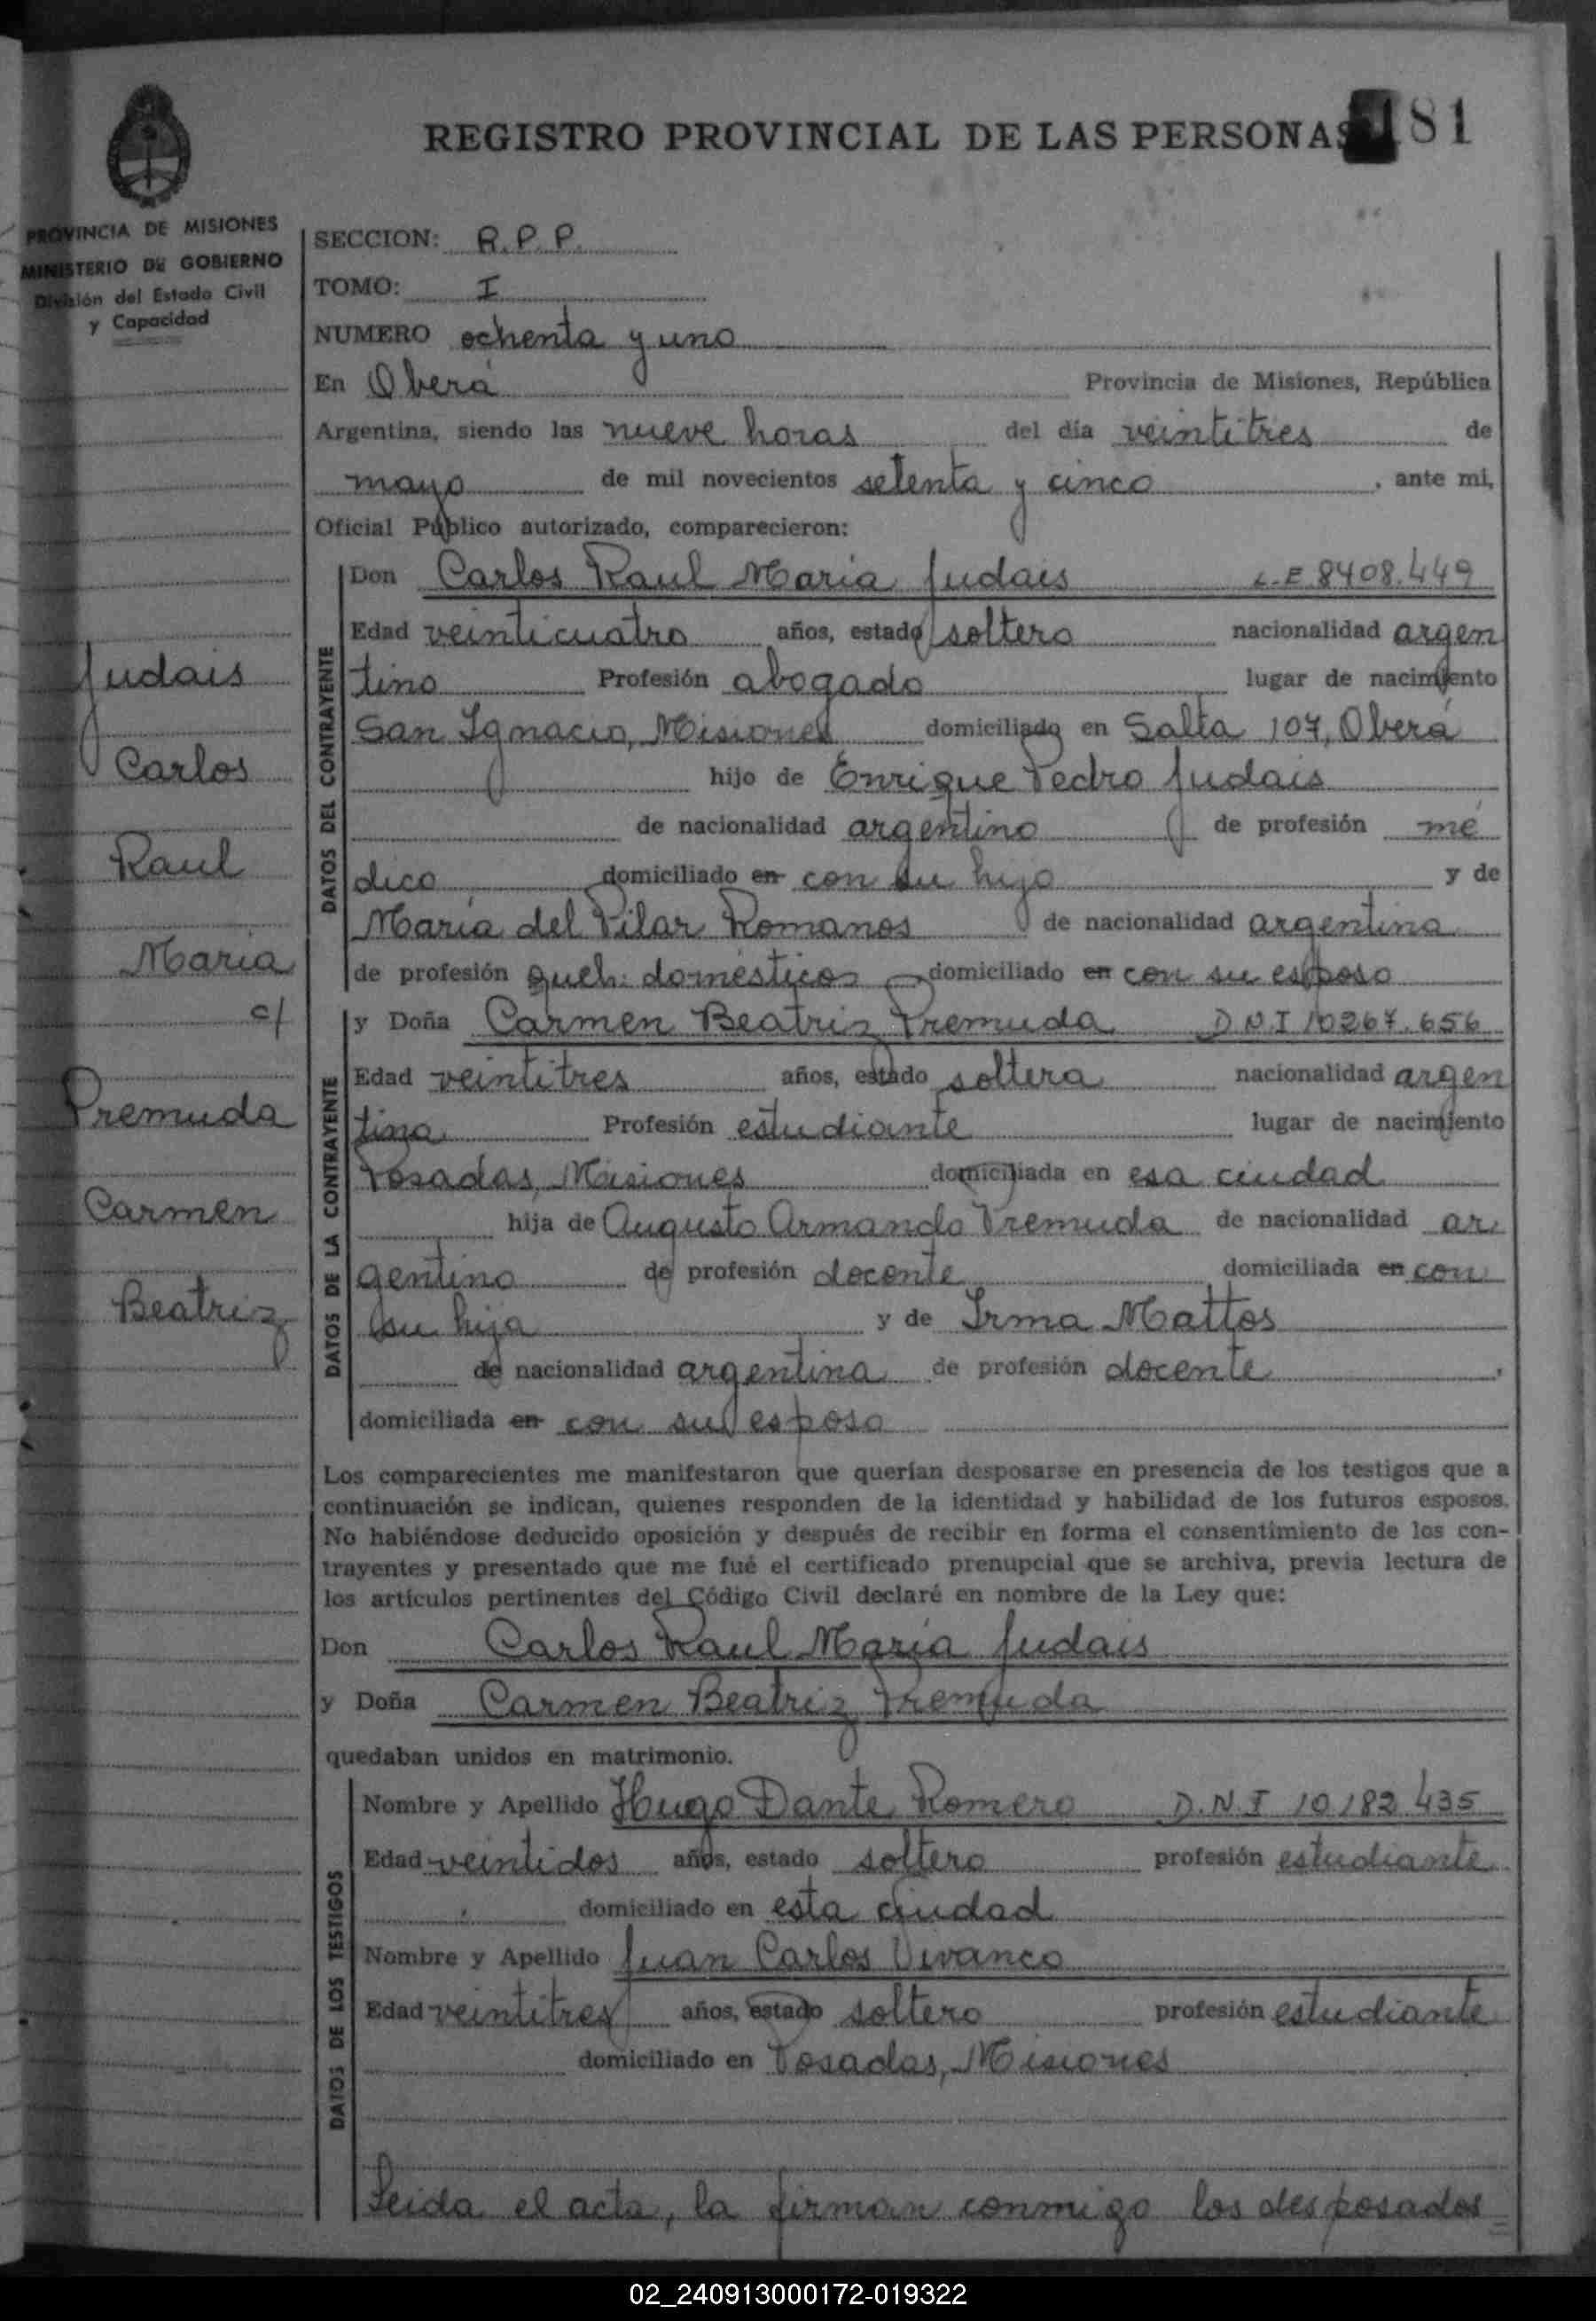 REGISTRO PROVINCIAL DE LAS PERSONAS 181
PROVINCIA DE MISIONES
MINISTERIO DE GOBIERNO
División del Estado Civil
y Capacidad
SECCION: R.P.P.
TOMO: I
NUMERO ochenta y uno
En Oberá Provincia de Misiones, República
Argentina, siendo las nueve horas del día veintitres de
mayo de mil novecientos setenta y cinco, ante mi,
Oficial Público autorizado, comparecieron:
Judais
Carlos
Raul
Maria
c/
Premuda
Carmen
Beatriz
DATOS DEL CONTRAYENTE
Don Carlos Raul Maria Judais L.E 8408.449
Edad veinticuatro años, estado soltero nacionalidad argen
tino Profesión abogado lugar de nacimiento
San Ignacio, Misiones domiciliado en Salta 107, Oberá
hijo de Enrique Pedro Judais
de nacionalidad argentino de profesión mé
dico domiciliado en con su hijo y de
María del Pilar Romanos de nacionalidad argentina
de profesión queh. domésticos domiciliado en con su esposo
DATOS DE LA CONTRAYENTE
y Doña Carmen Beatriz Premuda D.N.I 10267.656
Edad veintitres años, estado soltera nacionalidad argen
tina Profesión estudiante lugar de nacimiento
Posadas, Misiones domiciliada en esa ciudad
hija de Augusto Armando Premuda de nacionalidad ar
gentino de profesión docente domiciliada en con
su hija y de Irma Mattos
de nacionalidad argentina de profesión docente,
domiciliada en con su esposo
Los comparecientes me manifestaron que querían desposarse en presencia de los testigos que a
continuación se indican, quienes responden de la identidad y habilidad de los futuros esposos.
No habiéndose deducido oposición y después de recibir en forma el consentimiento de los con-
trayentes y presentado que me fué el certificado prenupcial que se archiva, previa lectura de
los artículos pertinentes del Código Civil declaré en nombre de la Ley que:
Don Carlos Raul María Judais
y Doña Carmen Beatriz Premuda
quedaban unidos en matrimonio.
DATOS DE LOS TESTIGOS
Nombre y Apellido Hugo Dante Romero D.N.I 10182.435
Edad veintidos años, estado soltero profesión estudiante
domiciliado en esta ciudad
Nombre y Apellido Juan Carlos Vivanco
Edad veintitres años, estado soltero profesión estudiante
domiciliado en Posadas, Misiones
Leida el acta, la firman conmigo los desposados
02_240913000172-019322